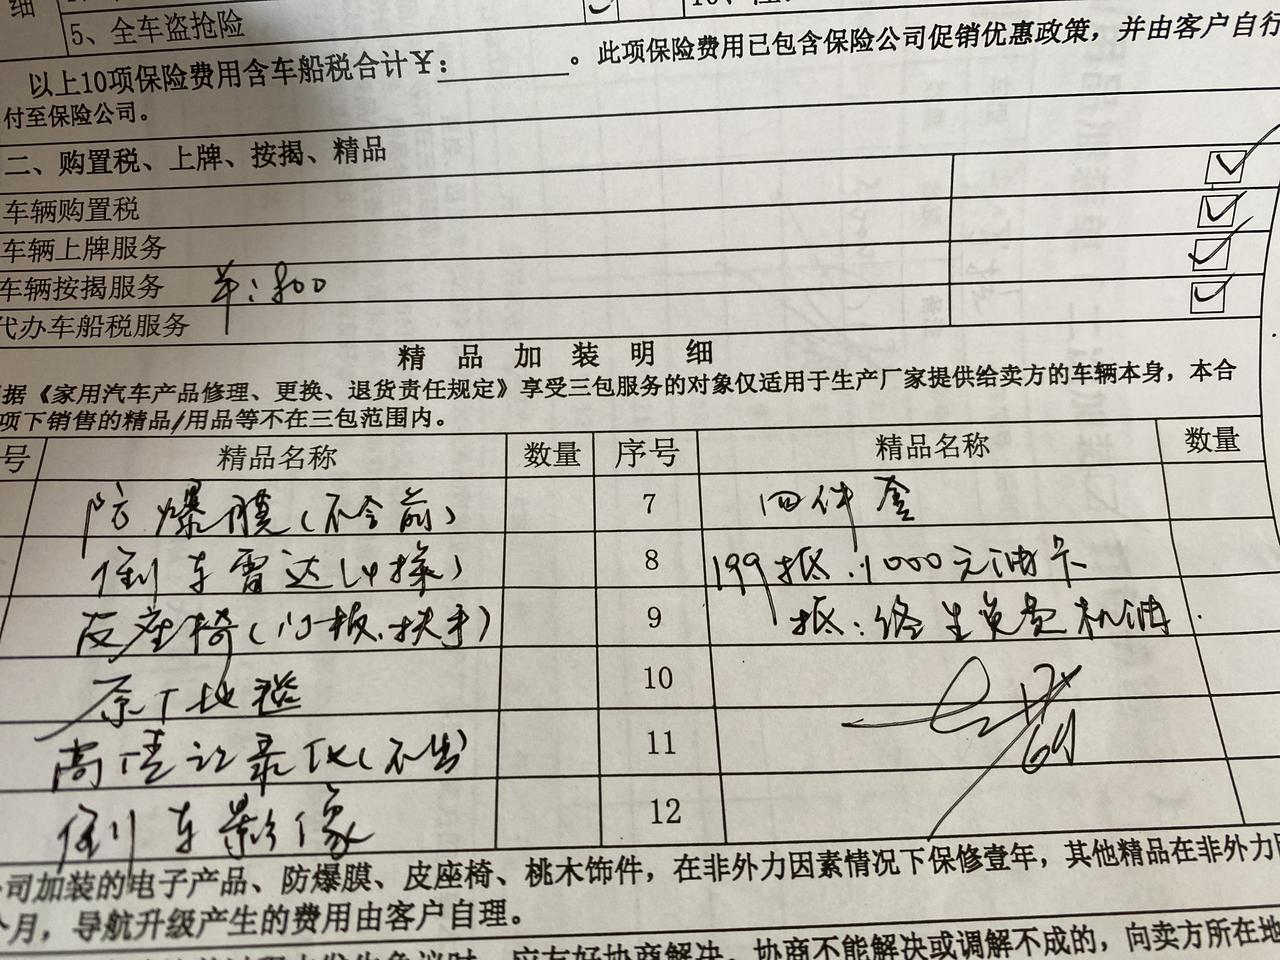 细
5、全车盗抢险
以上10项保险费用含车船税合计¥：________。此项保险费用已包含保险公司促销优惠政策，并由客户自行
付至保险公司。
二、购置税、上牌、按揭、精品
车辆购置税
车辆上牌服务
车辆按揭服务
代办车船税服务
精品加装明细
据《家用汽车产品修理、更换、退货责任规定》享受三包服务的对象仅适用于生产厂家提供给卖方的车辆本身，本合
项下销售的精品/用品等不在三包范围内。
号 精品名称 数量 序号 精品名称 数量
防爆膜(不含前) 7 四件套
倒车雷达(4探) 8 199抵:1000元油卡
皮座椅(门板.扶手) 9 抵:终生免费机油.
原厂地毯 10
高清记录仪( 11
倒车影像 12
司加装的电子产品、防爆膜、皮座椅、桃木饰件，在非外力因素情况下保修壹年，其他精品在非外力
个月，导航升级产生的费用由客户自理。
应友好协商解决，协商不能解决或调解不成的，向卖方所在地